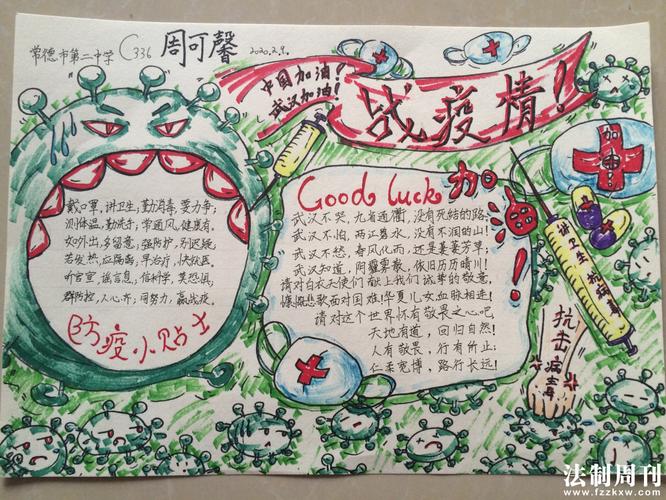 常德市第二中学 C336 周可馨 2020.2.9.
中国加油!
武汉加油!
战疫情!
戴口罩,讲卫生;勤消毒,要力争;
测体温,勤洗手;常通风,健康有.
如外出,多留意;强防护,别迟疑.
若发热,应隔离;早治疗,快就医.
听官宣,谣言息;信科学,莫恐惧.
群防控,人心齐;同努力,赢战疫.
防疫小贴士
Good luck 加油!
武汉不哭,九省通衢,没有死结的路;
武汉不怕,两江碧水,没有不润的山!
武汉不愁,春风化雨,还是萋萋芳草;
武汉知道,阴霾雾散,依旧历历晴川!
请对白衣天使们献上我们诚挚的敬意,
慷慨悲歌面对国难!华夏儿女血脉相连!
请对这个世界怀有敬畏之心吧
天地有道,回归自然!
人有敬畏,行有所止;
仁柔宽博,路行长远!
加油
讲卫生 抗病毒
抗击病毒
法制周刊
www.fzzkxw.com